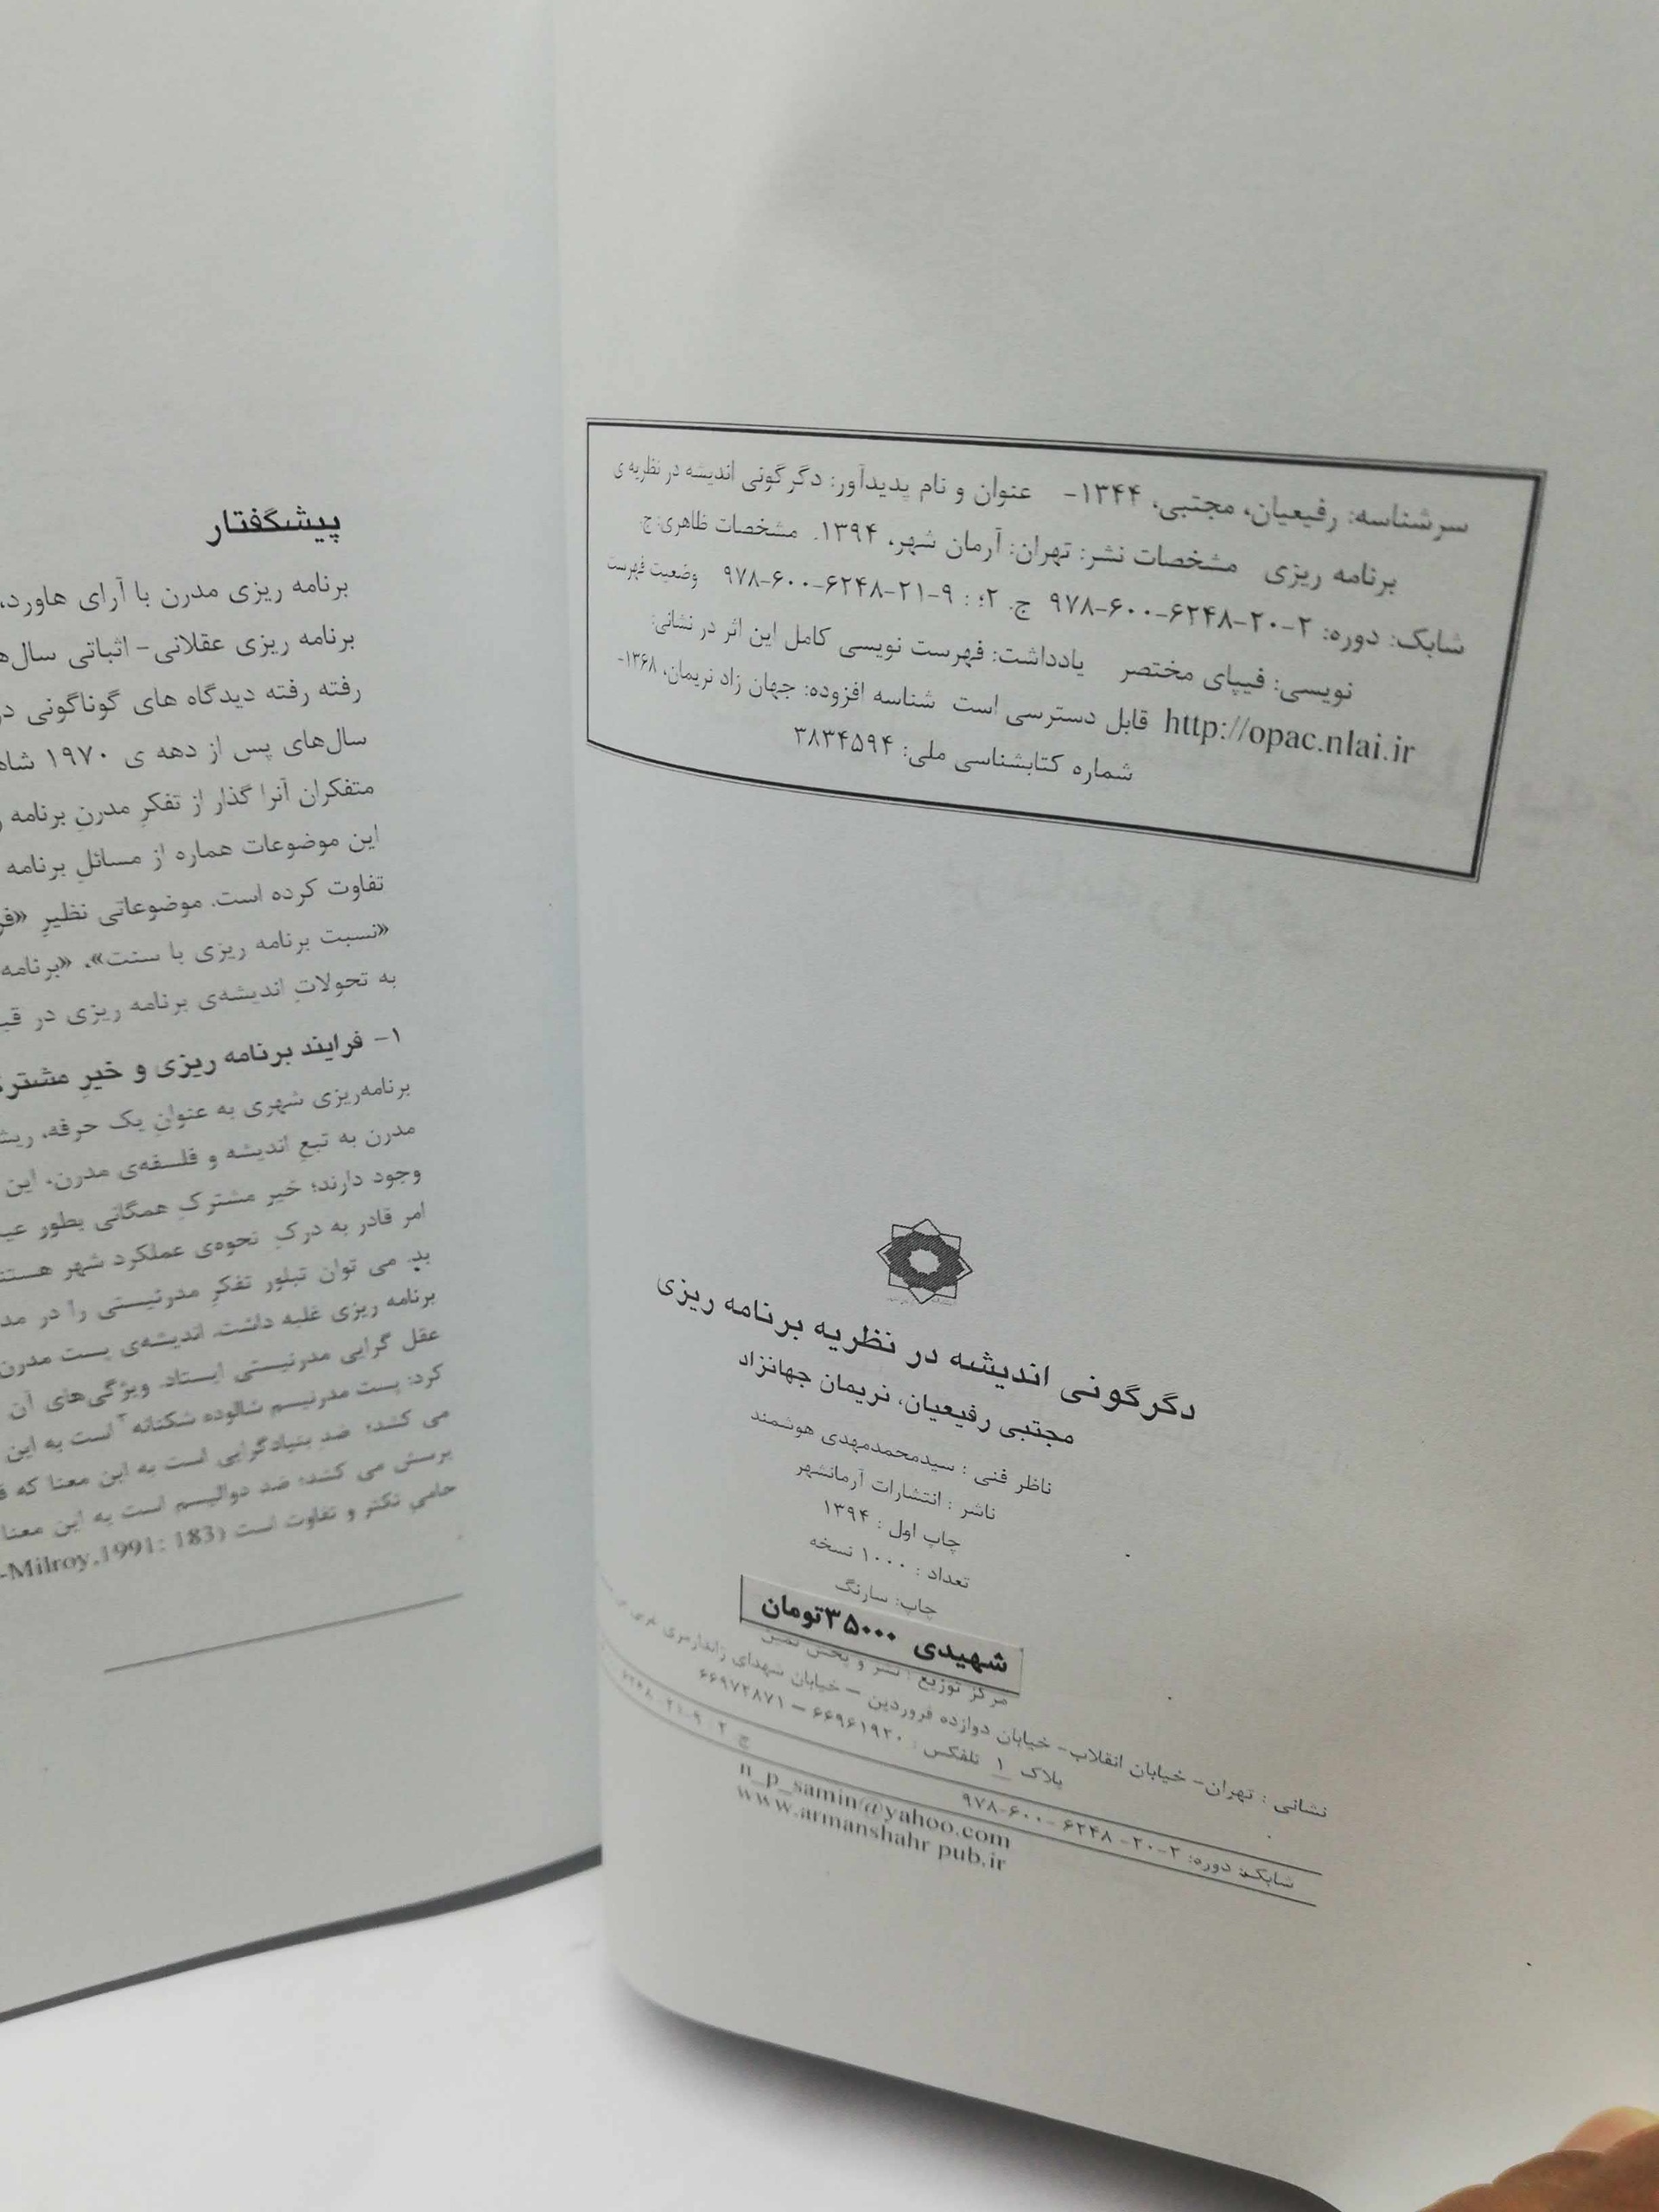 سرشناسه: رفیعیان، مجتبی، ۱۳۴۴- عنوان و نام پدیدآور: دگرگونی اندیشه در نظریه ی
برنامه ریزی مشخصات نشر: تهران: آرمان شهر، ۱۳۹۴. مشخصات ظاهری: ج.
شابک: دوره: ۲-۲۰-۶۲۴۸-۶۰۰-۹۷۸ ج. ۲؛ : ۹-۲۱-۶۲۴۸-۶۰۰-۹۷۸ وضعیت فهرست
نویسی: فیپای مختصر یادداشت: فهرست نویسی کامل این اثر در نشانی:
http://opac.nlai.ir قابل دسترسی است شناسه افزوده: جهان زاد نریمان، ۱۳۶۸-
شماره کتابشناسی ملی: ۳۸۳۴۵۹۴
دگرگونی اندیشه در نظریه برنامه ریزی
مجتبی رفیعیان، نریمان جهانزاد
ناظر فنی : سیدمحمدمهدی هوشمند
ناشر : انتشارات آرمانشهر
چاپ اول : ۱۳۹۴
تعداد : ۱۰۰۰ نسخه
چاپ: سارنگ
شهیدی ۳۵۰۰۰تومان
مرکز توزیع : نشر و پخش ثمین
نشانی : تهران- خیابان انقلاب- خیابان دوازده فروردین – خیابان شهدای ژاندارمری غربی
پلاک ۱ تلفکس : ۶۶۹۶۱۹۲۰ – ۶۶۹۷۲۸۷۱
شابک: دوره: ۲-۲۰- ۶۲۴۸ -۶۰۰-۹۷۸ ج ۲
n_p_samin@yahoo.com
www.armanshahr pub.ir
پیشگفتار
برنامه ریزی مدرن با آرای هاورد،
برنامه ریزی عقلانی- اثباتی
رفته رفته دیدگاه های گوناگونی
سال‌های پس از دهه ی ۱۹۷۰
متفکران آنرا گذار از تفکرِ مدرنِ برنامه
این موضوعات هماره از مسائلِ برنامه
تفاوت کرده است. موضوعاتی نظیرِ
«نسبت برنامه ریزی با سنت»، «برنامه
به تحولاتِ اندیشه‌ی برنامه ریزی در
۱- فرایند برنامه ریزی و خیرِ
برنامه‌ریزی شهری به عنوانِ یک حرفه،
مدرن به تبعِ اندیشه و فلسفه‌ی مدرن، این
وجود دارند؛ خیر مشترکِ همگانی بطور
امر قادر به درکِ نحوه‌ی عملکرد شهر
بد. می توان تبلور تفکرِ مدرنیستی را در
برنامه ریزی غلبه داشت. اندیشه‌ی پست مدرن
عقل گرایی مدرنیستی ایستاد. ویژگی‌های آن
کرد: پست مدرنیسم شالوده شکنانه۲ است به این
می کشد؛ ضد بنیادگرایی است به این معنا که
پرسش می کشد؛ ضد دوالیسم است به این معنا
حامی تکثر و تفاوت است (Milroy,1991: 183-